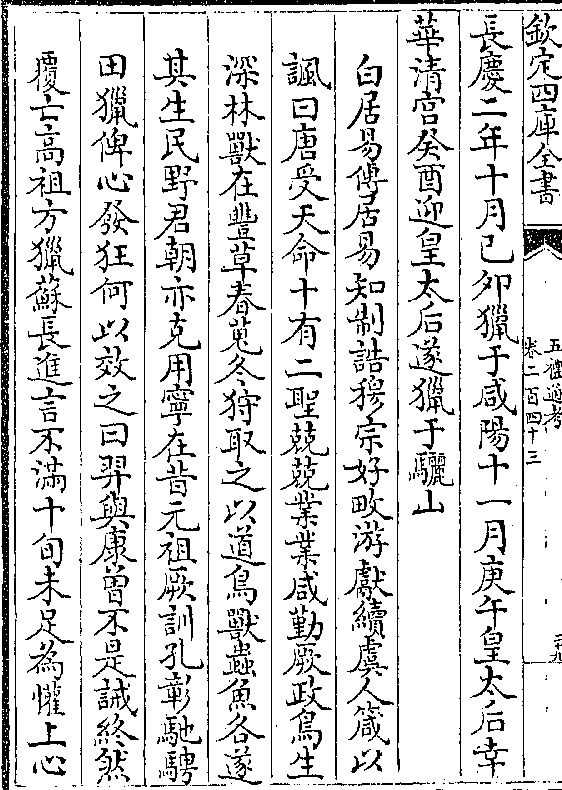 欽定四庫全書
五禮通考
卷二百四十三
長慶二年十月己夘獵于咸陽十一月庚午皇太后幸
華清宫癸酉迎皇太后遂獵于驪山
白居易傳居易知制誥穆宗好畋游獻續虞人箴以
諷曰唐受天命十有二聖兢兢業業咸勤厥政鳥生
深林獸在豐草春蒐冬狩取之以道鳥獸蟲魚各遂
其生民野君朝亦克用寧在昔元祖厥訓孔彰馳騁
田獵俾心發狂何以效之曰羿與康曽不是誡終然
覆亡高祖方獵蘇長進言不滿十旬未足為懽上心